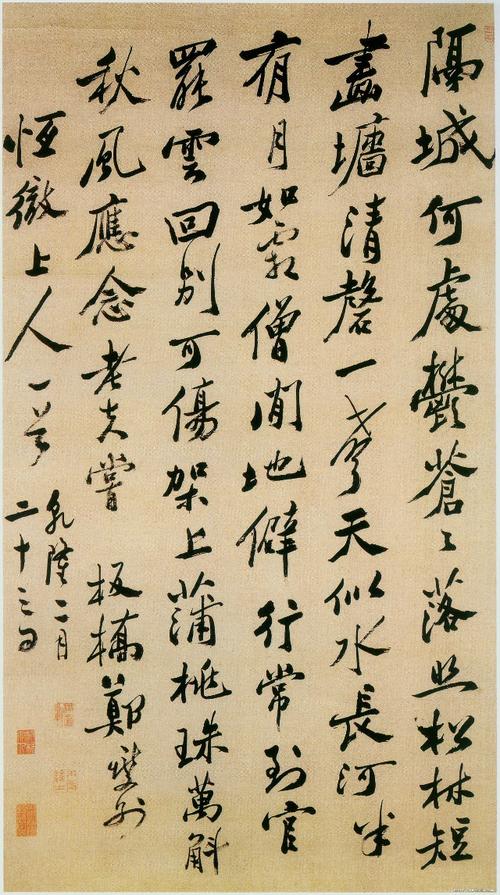 隔城何處鬱蒼〻落照松林短
畫墻清磬一聲天似水長河半
有月如霜僧閒地僻行常到官
罷雲回別可傷架上蒲桃珠萬斛
秋風應念老夫嘗 板橋鄭燮
恒徹上人一哂
乾隆二月
二十三日